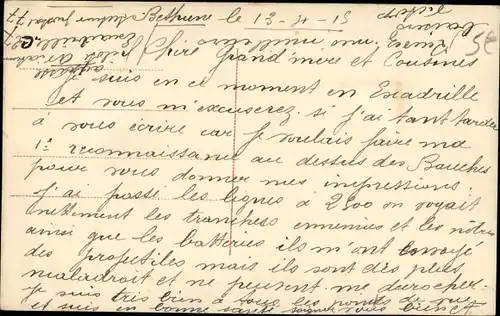 Bethune le 13-4-15
Chère Grand mère et Cousines
Je suis en ce moment en Escadrille
et vous m'excuserez si j'ai tant tardé
à vous écrire car je voulais faire ma
1e reconnaissance au dessus des Bauches
pour vous donner mes impressions.
J'ai passé les lignes à 2500 on voyait
nettement les tranchées ennemies et les nôtres
ainsi que les batteries ils m'ont envoyé
des projectiles mais ils sont des plus
maladroit et ne peuvent me decrocher
Je suis très bien à tous les points de vue
et suis en bonne santé